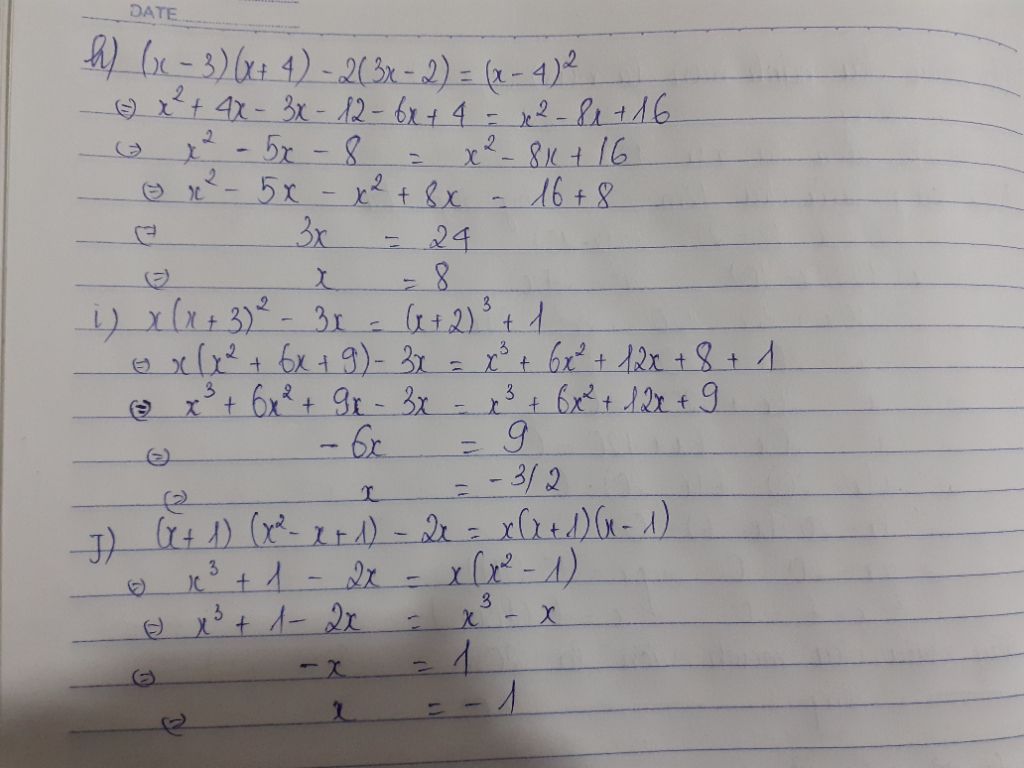 DATE
h) (x - 3)(x + 4) - 2(3x - 2) = (x - 4)²
⇔ x² + 4x - 3x - 12 - 6x + 4 = x² - 8x + 16
⇔ x² - 5x - 8 = x² - 8x + 16
⇔ x² - 5x - x² + 8x = 16 + 8
⇔ 3x = 24
⇔ x = 8
i) x(x + 3)² - 3x = (x + 2)³ + 1
⇔ x(x² + 6x + 9) - 3x = x³ + 6x² + 12x + 8 + 1
⇔ x³ + 6x² + 9x - 3x = x³ + 6x² + 12x + 9
⇔ - 6x = 9
⇔ x = - 3/2
J) (x + 1) (x² - x + 1) - 2x = x(x + 1)(x - 1)
⇔ x³ + 1 - 2x = x(x² - 1)
⇔ x³ + 1 - 2x = x³ - x
⇔ - x = 1
⇔ x = - 1